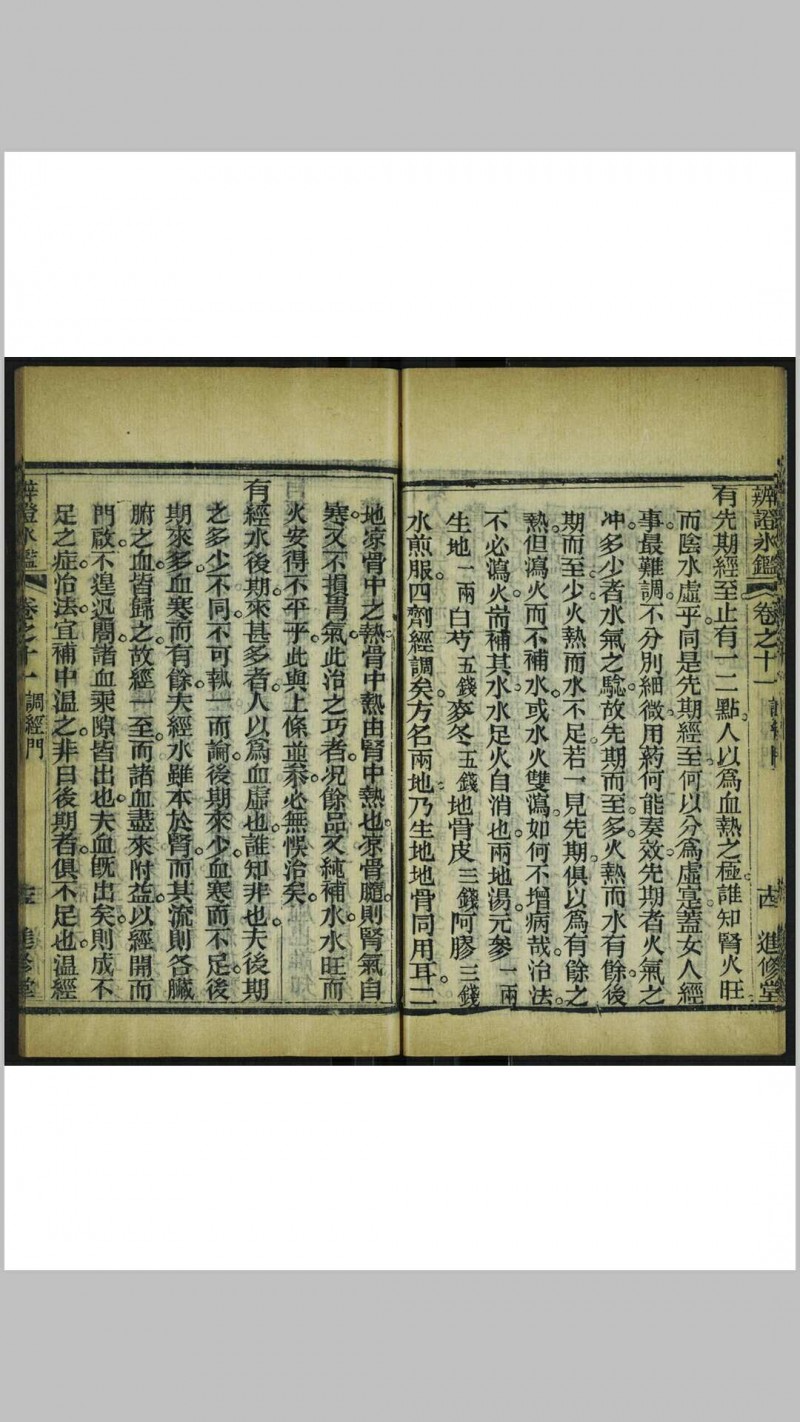 辨證氷鑑 卷之十一 進修堂
有先期經至止有一二點人以爲血熱之極誰知腎火旺
而陰水虛乎同是先期經至何以分爲虛寔蓋女人經
事最難調不分別細微用葯何能奏效先期者火氣之
冲多少者水氣之驗故先期而至多火熱而水有餘後
期而至少火熱而水不足若一見先期俱以爲有餘之
熱但瀉火而不補水或水火雙瀉如何不增病哉治法
不必瀉火耑補其水水足火自消也兩地湯元參一兩
生地一兩白芍五錢麥冬五錢地骨皮三錢阿膠三錢
水煎服四劑經調矣方名兩地乃生地地骨同用耳二
地凉骨中之熱骨中熱由腎中熱也凉骨髓則腎氣自
寒又不損胃氣此治之巧者况餘品又純補水水旺而
火安得不平乎此與上條並叅必無悞治矣
有經水後期來甚多者人以爲血虛也誰知非也夫後期
之多少不同不可執一而論後期來少血寒而不足後
期來多血寒而有餘夫經水雖本於腎而其流則各臟
腑之血皆歸之故經一至而諸血盡來附益以經開而
門啟不遑汎闇諸血乘隙皆出也夫血旣出矣則成不
足之症治法宜補中温之非曰後期者俱不足也温經
辨證氷鑑 卷之十一 調經門 進修堂